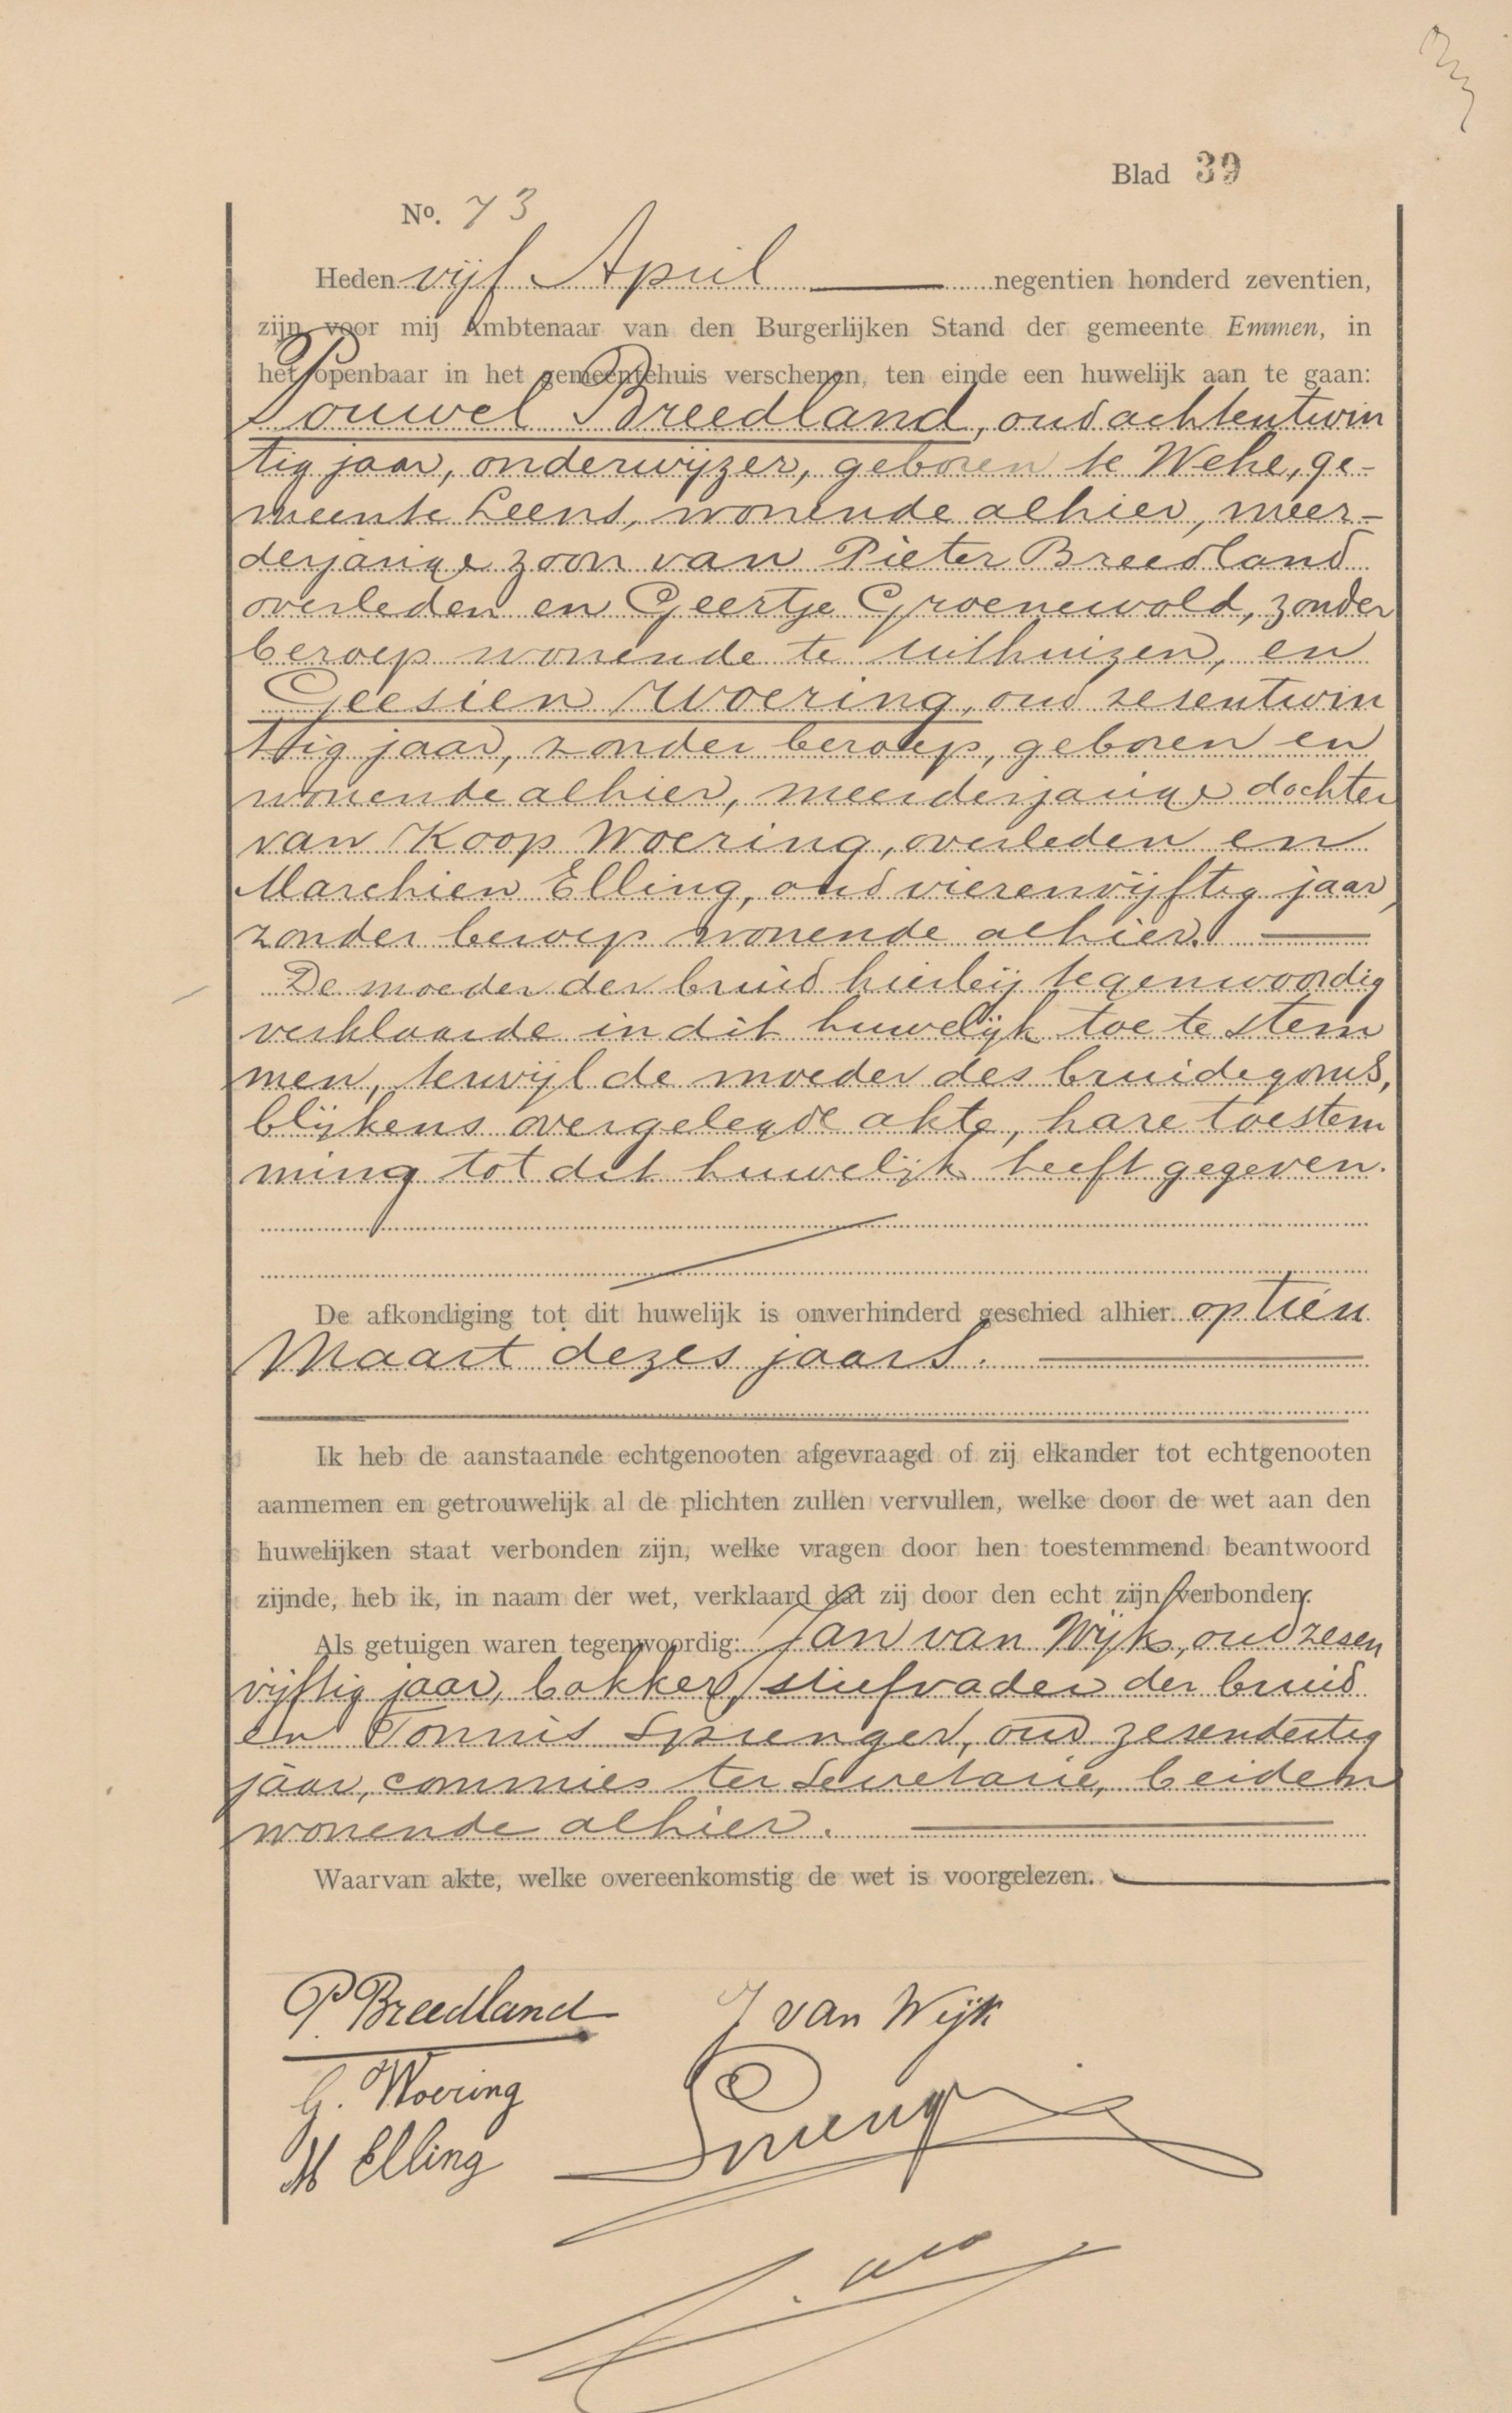 Blad 39
No. 73
Heden vijf April negentien honderd zeventien,
zijn voor mij Ambtenaar van den Burgerlijken Stand der gemeente Emmen, in
het openbaar in het gemeentehuis verschenen, ten einde een huwelijk aan te gaan:
Pouwel Breedland, oud achtentwin
tig jaar, onderwijzer, geboren te Wehe, ge-
meente Leens, wonende alhier, meer-
derjarige zoon van Pieter Breedland
overleden en Geertje Groenewold, zonder
beroep wonende te Uithuizen, en
Geesien Woering, oud zesentwin
tig jaar, zonder beroep, geboren en
wonende alhier, meerderjarige dochter
van Koop Woering, overleden en
Marchien Elling, oud vierenvijftig jaar,
zonder beroep wonende alhier.
De moeder der bruid hierbij tegenwoordig
verklaarde in dit huwelijk toe te stem
men, terwijl de moeder des bruidegoms,
blijkens overgelegde akte, hare toestem
ming tot dit huwelijk heeft gegeven.
De afkondiging tot dit huwelijk is onverhinderd geschied alhier op tien
Maart dezes jaars.
Ik heb de aanstaande echtgenooten afgevraagd of zij elkander tot echtgenooten
aannemen en getrouwelijk al de plichten zullen vervullen, welke door de wet aan den
huwelijken staat verbonden zijn, welke vragen door hen toestemmend beantwoord
zijnde, heb ik, in naam der wet, verklaard dat zij door den echt zijn verbonden.
Als getuigen waren tegenwoordig: Jan van Wijk, oud zesen
vijftig jaar, bakker, stiefvader der bruid
en Tonnis Sprenger, oud zesendertig
jaar, commies ter Secretarie, beiden
wonende alhier.
Waarvan akte, welke overeenkomstig de wet is voorgelezen.
P. Breedland J van Wijk
G. Woering
M Elling Sprenger